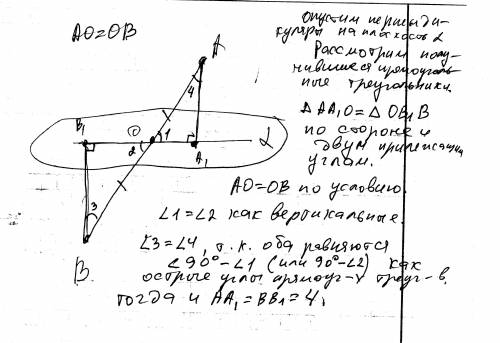 AO=OB
опустим перпенди-
куляры на плоскость α
Рассмотрим полу-
чившиеся прямоуголь-
ные треугольники.
△ AA₁O = △ OB₁B
по стороне и
двум прилежащим
углам.
A
4
B₁
O
1
2
A₁
α
3
B.
AO=OB по условию.
∠1=∠2 как вертикальные.
∠3=∠4, т.к. оба равняются
∠90°-∠1 (или 90°-∠2) как
острые углы прямоуг-х треуг-в.
тогда и AA₁=BB₁=4.